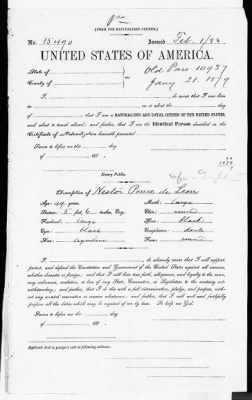 [FORM FOR NATURALIZED CITIZEN.]
No. 15490 Issued Feb. 1/82
UNITED STATES OF AMERICA.
State of } Old Pass 10937
County of } Jany 21. 1879
I, , do swear that I was born
in , on or about the day
of , that I am a NATURALIZED AND LOYAL CITIZEN OF THE UNITED STATES,
and about to travel abroad; and further, that I am the Identical Person described in the
Certificate of Naturalization herewith presented.
Sworn to before me, this day
of , 188 .
Notary Public.
Description of Nestor Ponce de Leon
Age: years. Mouth: Large
Stature: 5 feet 6 inches, Eng. Chin: round
Forehead: Large Hair: Black
Eyes: black Complexion: dark
Nose: Face: round
I, , do solemnly swear that I will support,
protect, and defend the Constitution and Government of the United States against all enemies,
whether domestic or foreign; and that I will bear true faith, allegiance, and loyalty to the same,
any ordinance, resolution, or law of any State, Convention, or Legislature to the contrary not-
withstanding; and further, that I do this with a full determination, pledge, and purpose, with-
out any mental reservation or evasion whatsoever; and further, that I will well and faithfully
perform all the duties which may be required of me by law. So help me God.
Sworn to before me, this day
of , 188 .
Applicant desires passport sent to following address: